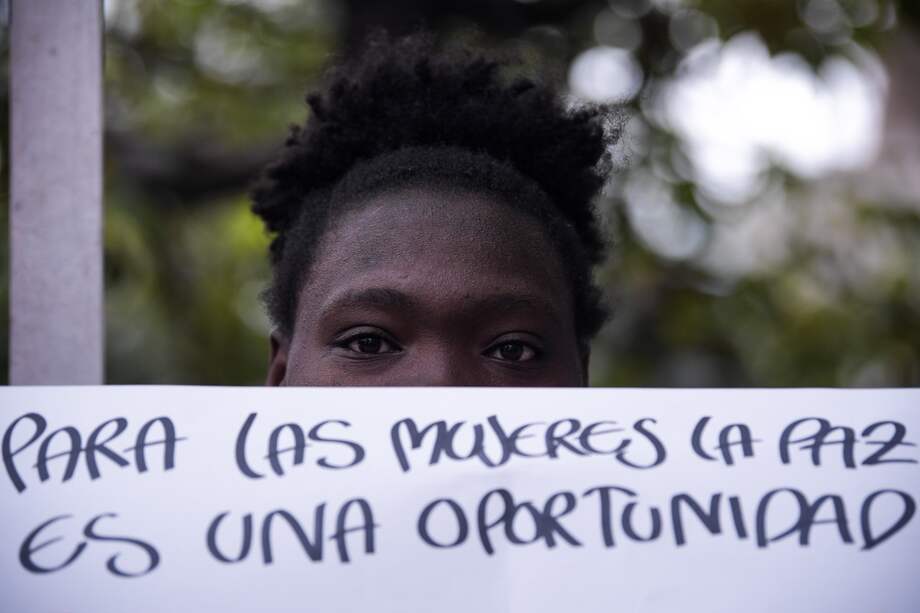 PARA LAS MUJERES LA PAZ
ES UNA OPORTUNIDAD